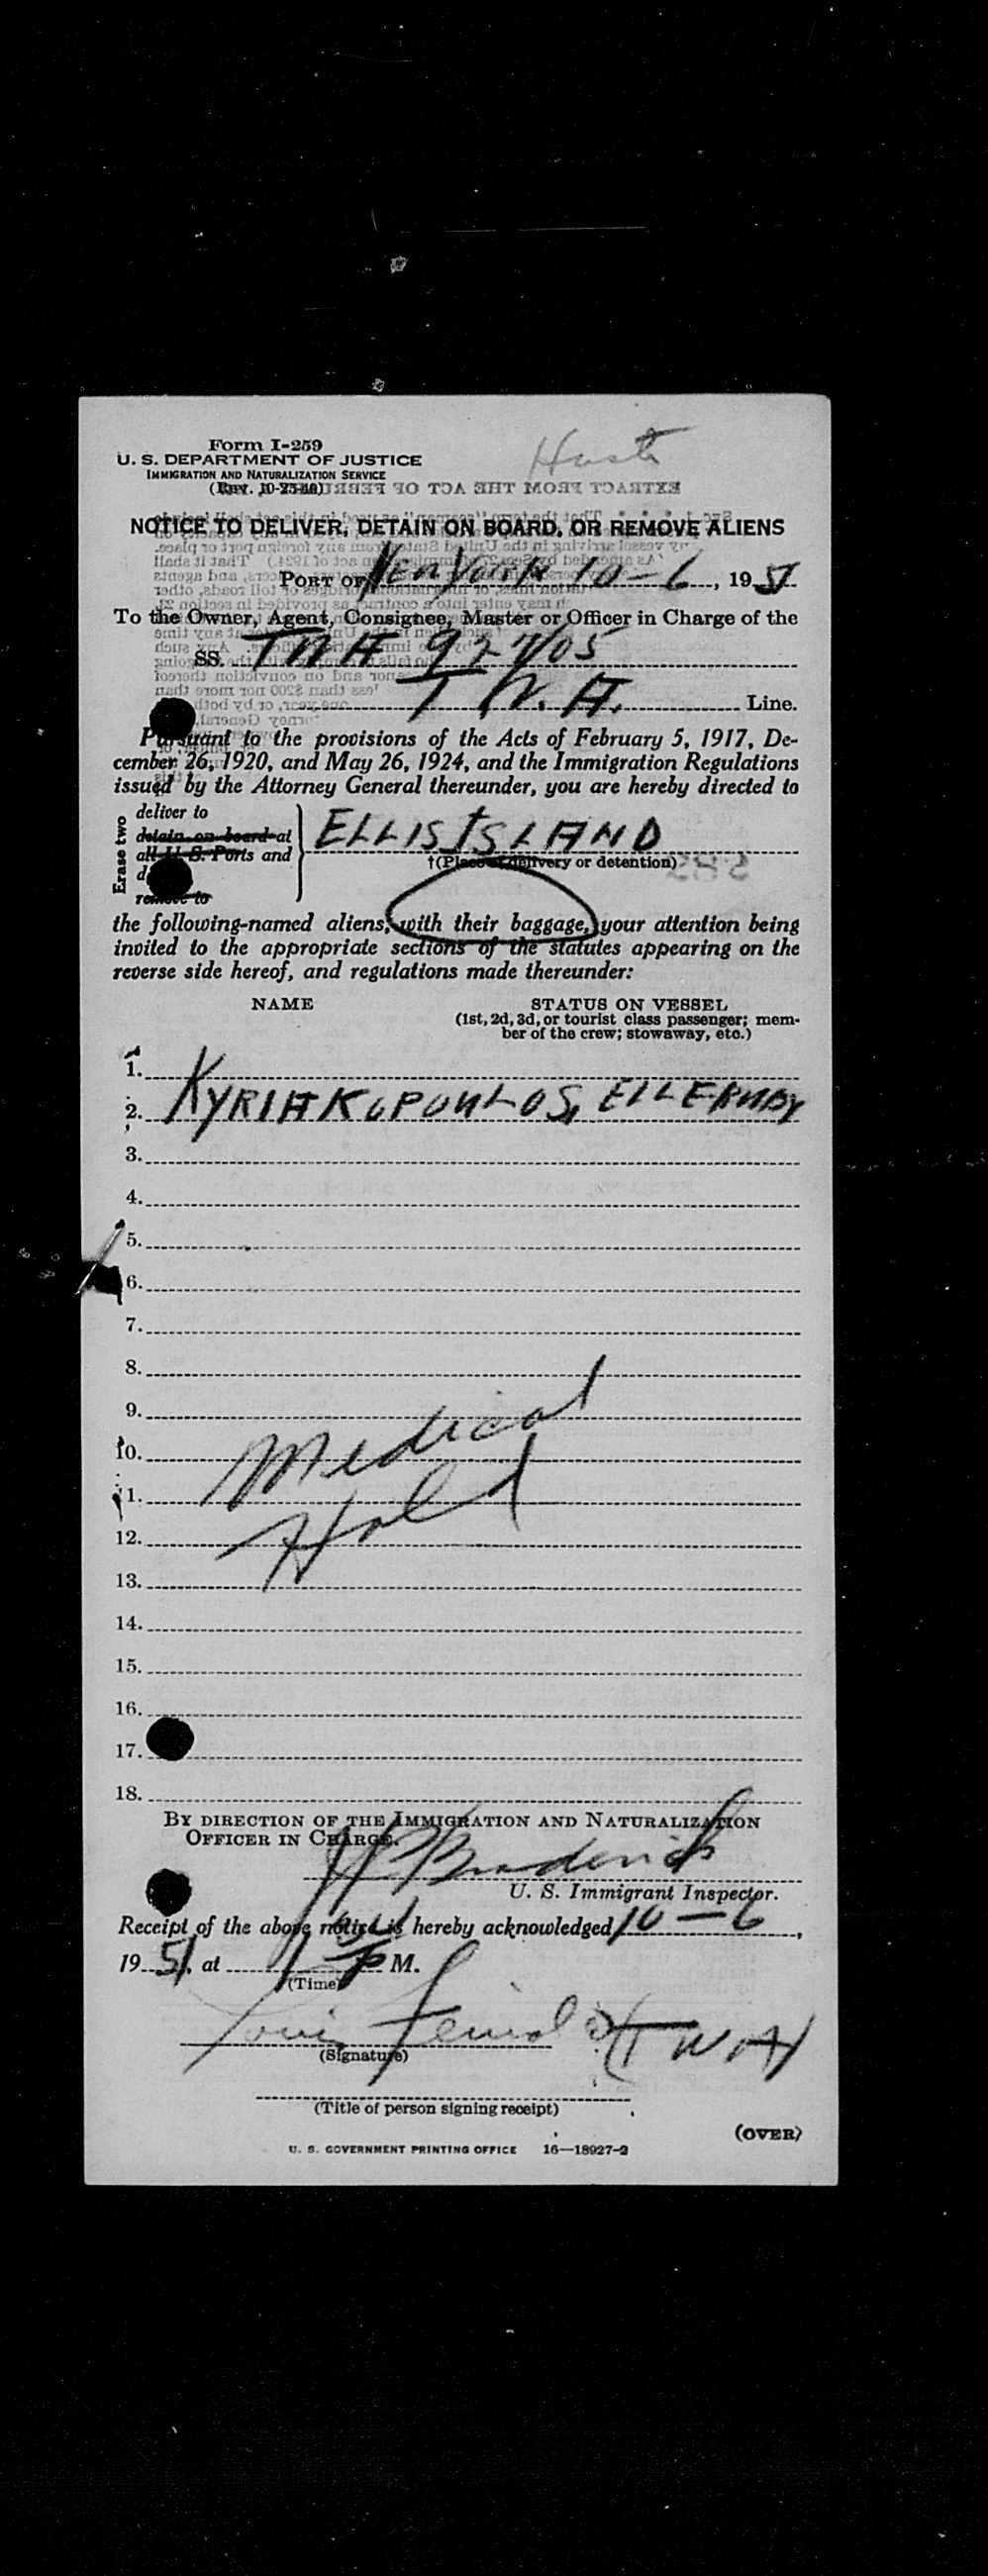 Form I-259
U. S. DEPARTMENT OF JUSTICE
IMMIGRATION AND NATURALIZATION SERVICE
(Rev. 10-25-40)
EXTRACT FROM THE ACT OF
NOTICE TO DELIVER, DETAIN ON BOARD, OR REMOVE ALIENS
PORT OF New York 10-6, 1951
To the Owner, Agent, Consignee, Master or Officer in Charge of the
SS.
T.W.A. Line.
Pursuant to the provisions of the Acts of February 5, 1917, De-
cember 26, 1920, and May 26, 1924, and the Immigration Regulations
issued by the Attorney General thereunder, you are hereby directed to
Erase two
deliver to
detain on board at
all U. S. Ports and
remove to
ELLIS ISLAND
†(Place of delivery or detention)
the following-named aliens, with their baggage, your attention being
invited to the appropriate sections of the statutes appearing on the
reverse side hereof, and regulations made thereunder:
NAME STATUS ON VESSEL
(1st, 2d, 3d, or tourist class passenger; mem-
ber of the crew; stowaway, etc.)
1.
2. KYRIAKOPOULOS,
3.
4.
5.
6.
7.
8.
9.
10.
11.
12.
13.
Medical
Hold
14.
15.
16.
17.
18.
BY DIRECTION OF THE IMMIGRATION AND NATURALIZATION
OFFICER IN CHARGE.
Broderick
U. S. Immigrant Inspector.
Receipt of the above notice is hereby acknowledged 10-6,
1951, at P M.
(Time)
Louis (TWA)
(Signature)
(Title of person signing receipt)
(OVER)
U. S. GOVERNMENT PRINTING OFFICE 16—18927-2